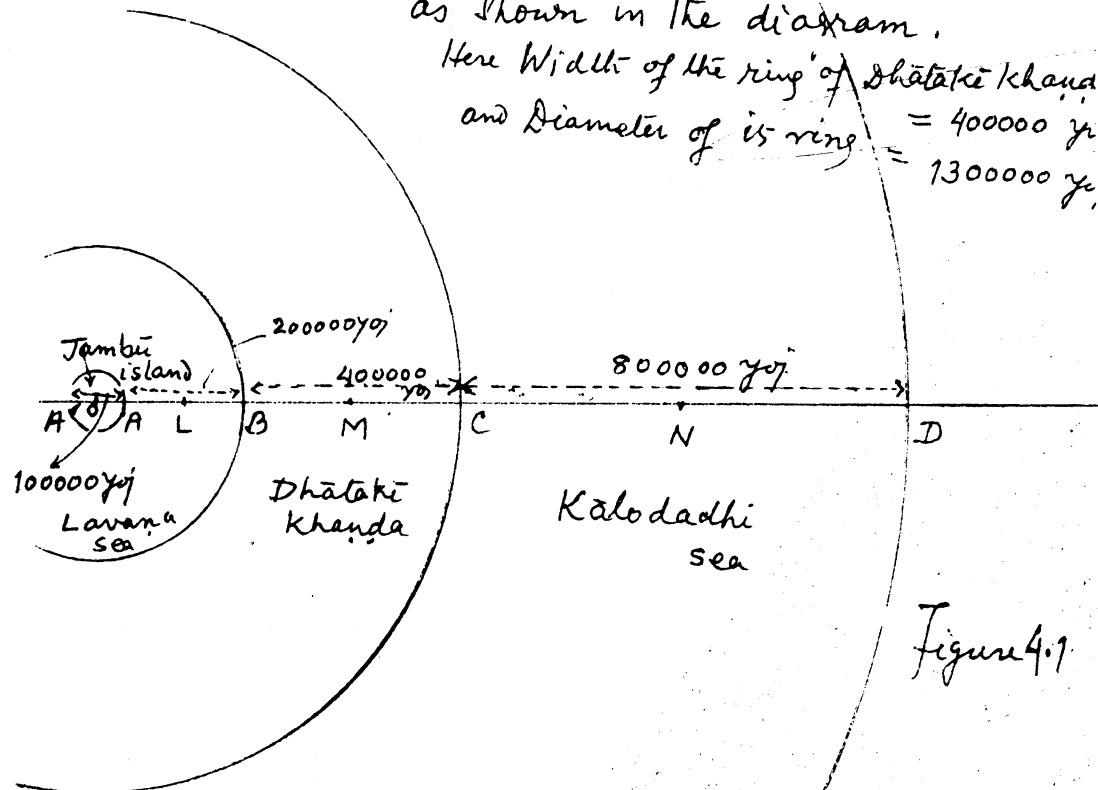 as shown in the diagram.
Here Width of the ring of Dhātakī khaṇḍ
= 400000 y
and Diameter of is ring = 1300000 y
200000 yoj
Jambū
island
400000
yoj
800000 yoj
A O A L B M C N D
100000 yoj
Lavaṇa
sea
Dhātakī
Khaṇḍa
Kālodadhi
sea
Figure 4.1